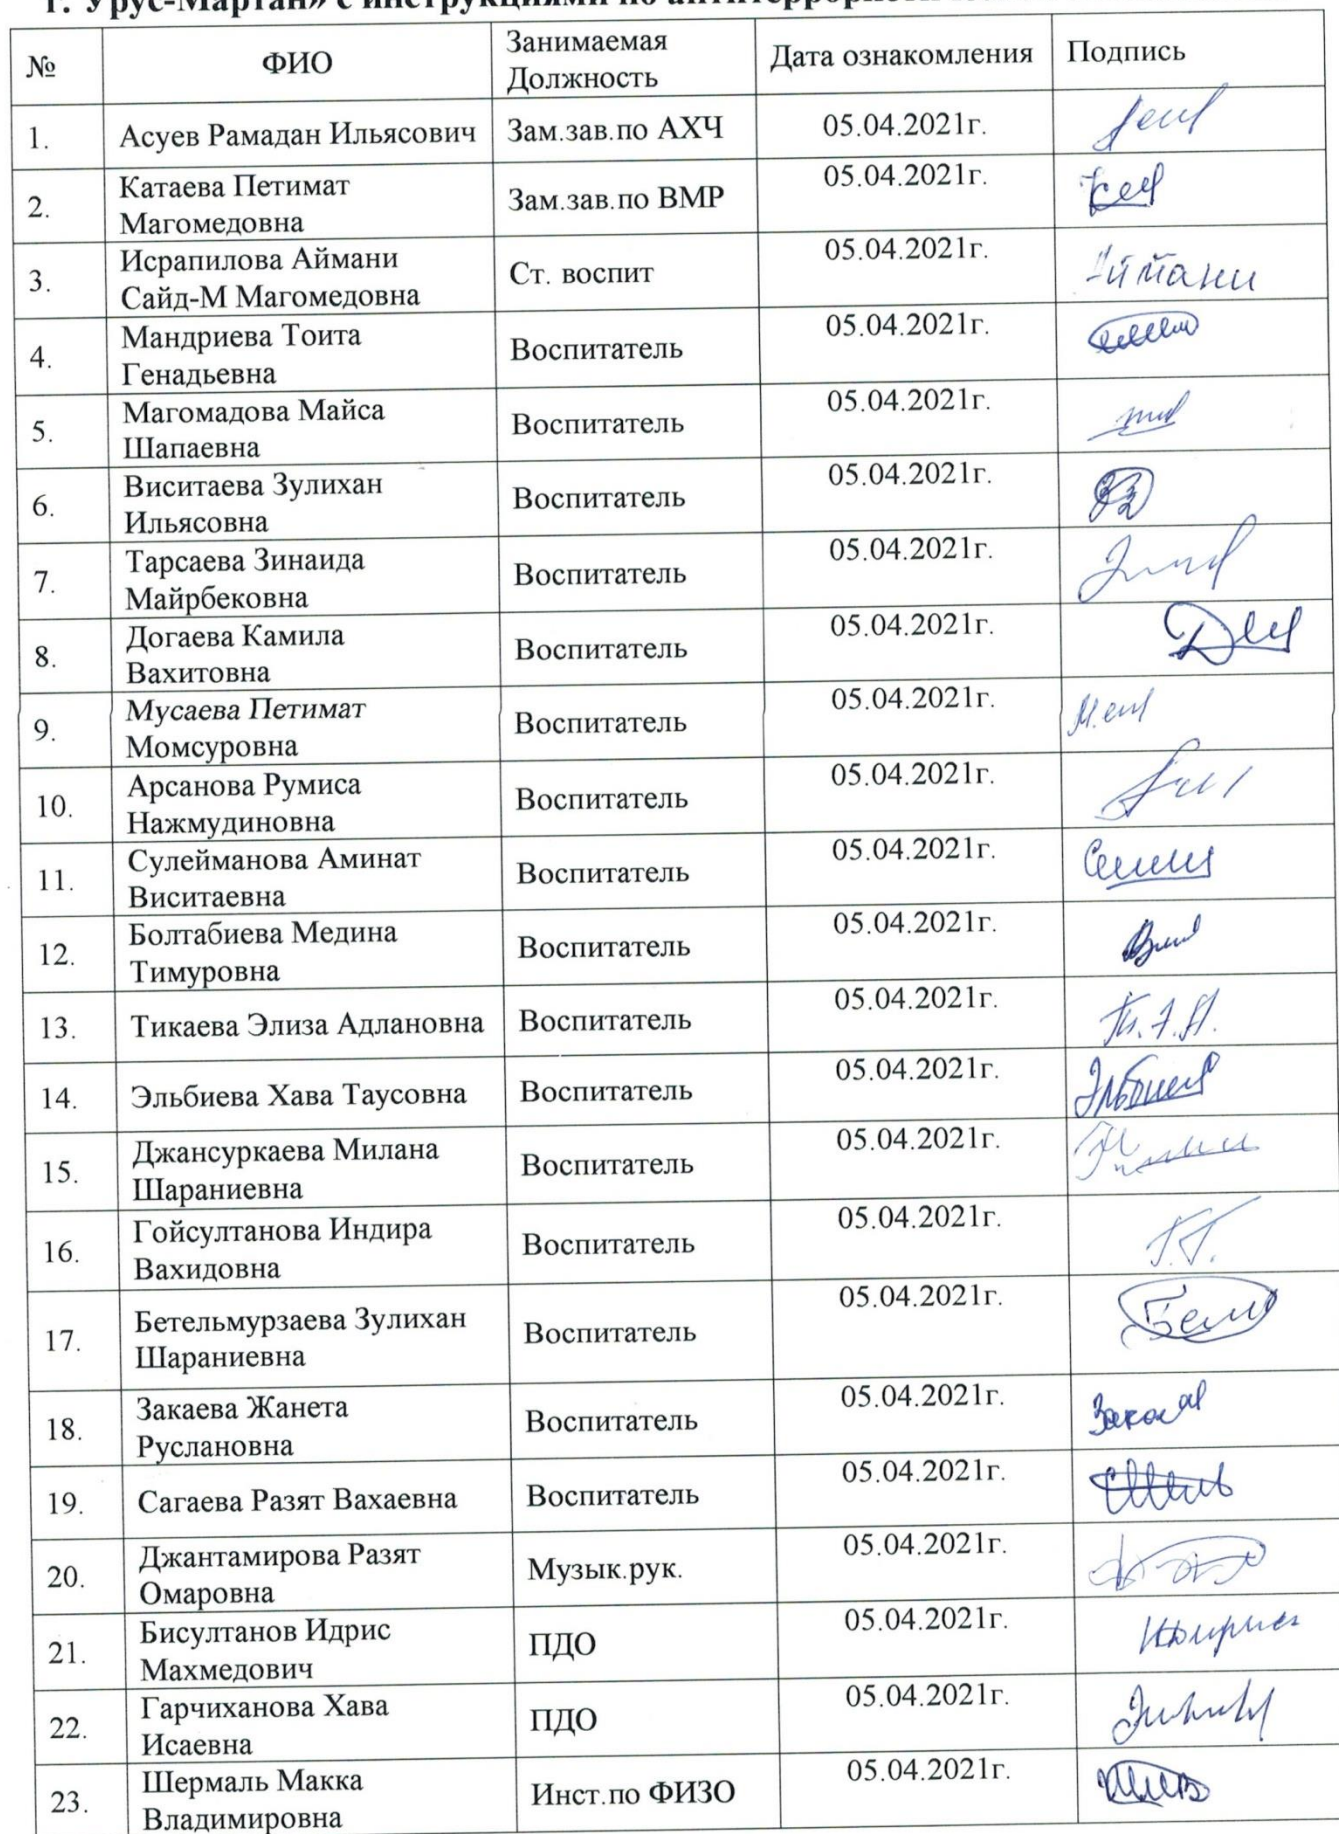 г. Урус-Мартан» с инструкциями по
№ ФИО Занимаемая Должность Дата ознакомления Подпись
1. Асуев Рамадан Ильясович Зам.зав.по АХЧ 05.04.2021г.
2. Катаева Петимат Магомедовна Зам.зав.по ВМР 05.04.2021г.
3. Исрапилова Аймани Сайд-М Магомедовна Ст. воспит 05.04.2021г. Аймани
4. Мандриева Тоита Генадьевна Воспитатель 05.04.2021г.
5. Магомадова Майса Шапаевна Воспитатель 05.04.2021г.
6. Виситаева Зулихан Ильясовна Воспитатель 05.04.2021г.
7. Тарсаева Зинаида Майрбековна Воспитатель 05.04.2021г.
8. Догаева Камила Вахитовна Воспитатель 05.04.2021г.
9. Мусаева Петимат Момсуровна Воспитатель 05.04.2021г.
10. Арсанова Румиса Нажмудиновна Воспитатель 05.04.2021г.
11. Сулейманова Аминат Виситаевна Воспитатель 05.04.2021г.
12. Болтабиева Медина Тимуровна Воспитатель 05.04.2021г.
13. Тикаева Элиза Адлановна Воспитатель 05.04.2021г.
14. Эльбиева Хава Таусовна Воспитатель 05.04.2021г.
15. Джансуркаева Милана Шараниевна Воспитатель 05.04.2021г.
16. Гойсултанова Индира Вахидовна Воспитатель 05.04.2021г.
17. Бетельмурзаева Зулихан Шараниевна Воспитатель 05.04.2021г.
18. Закаева Жанета Руслановна Воспитатель 05.04.2021г.
19. Сагаева Разят Вахаевна Воспитатель 05.04.2021г.
20. Джантамирова Разят Омаровна Музык.рук. 05.04.2021г.
21. Бисултанов Идрис Махмедович ПДО 05.04.2021г.
22. Гарчиханова Хава Исаевна ПДО 05.04.2021г.
23. Шермаль Макка Владимировна Инст.по ФИЗО 05.04.2021г.